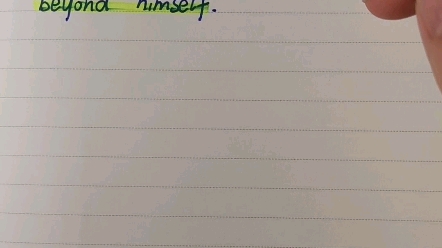 beyond himself.